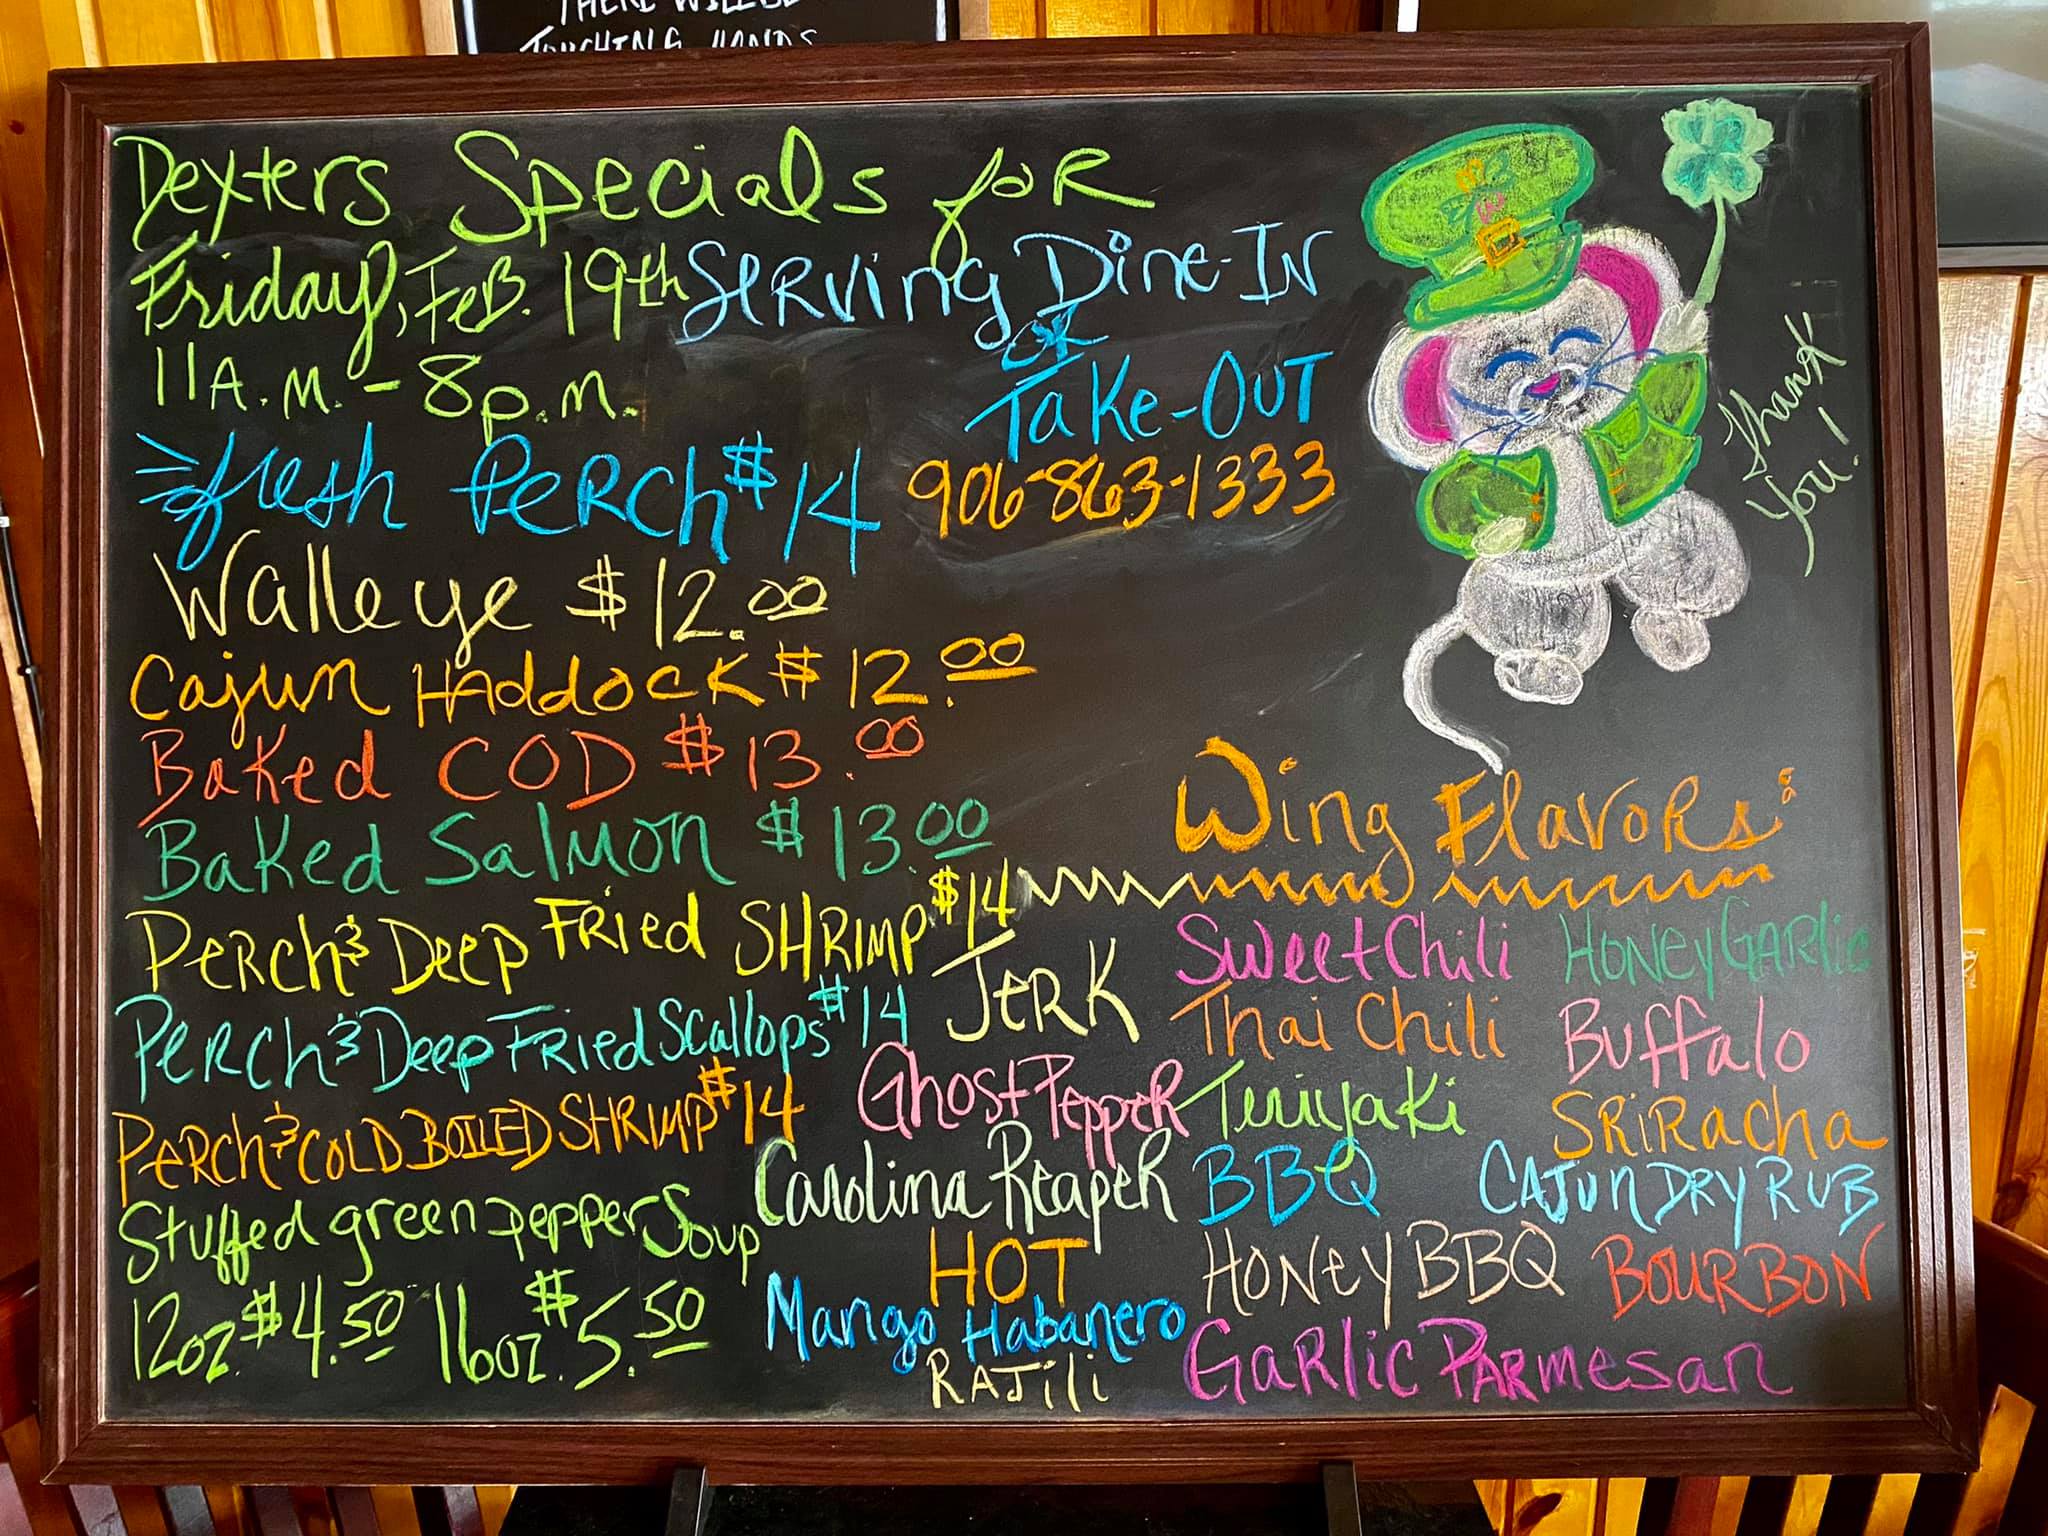 THERE WILL BE
TOUCHING HANDS
Dexters Specials foR
Friday, FEB. 19th
11A.M. - 8p.m.
SERving Dine-IN
OR
Take-OUT
906-863-1333
fresh PERCh $14
Walleye $12.00
Cajun HAddocK $12.00
BaKed COD $13.00
BaKed Salmon $13.00
PERCh & Deep FRied SHRIMP $14
PERCh & Deep FRied Scallops $14
PERCh & COLD BOILED SHRIMP $14
Stuffed green pepper Soup
12oz. $4.50 16oz. $5.50
Thank
You!
Wing FlavoRs:
JERK
Ghost PeppeR
Carolina ReapeR
HOT
Mango Habanero
RAJili
Sweet Chili
Thai Chili
TeriyaKi
BBQ
HoNey BBQ
GaRlic PARmesan
HONey GARlic
Buffalo
SRiRacha
CAJUN DRY RUB
BOURBON